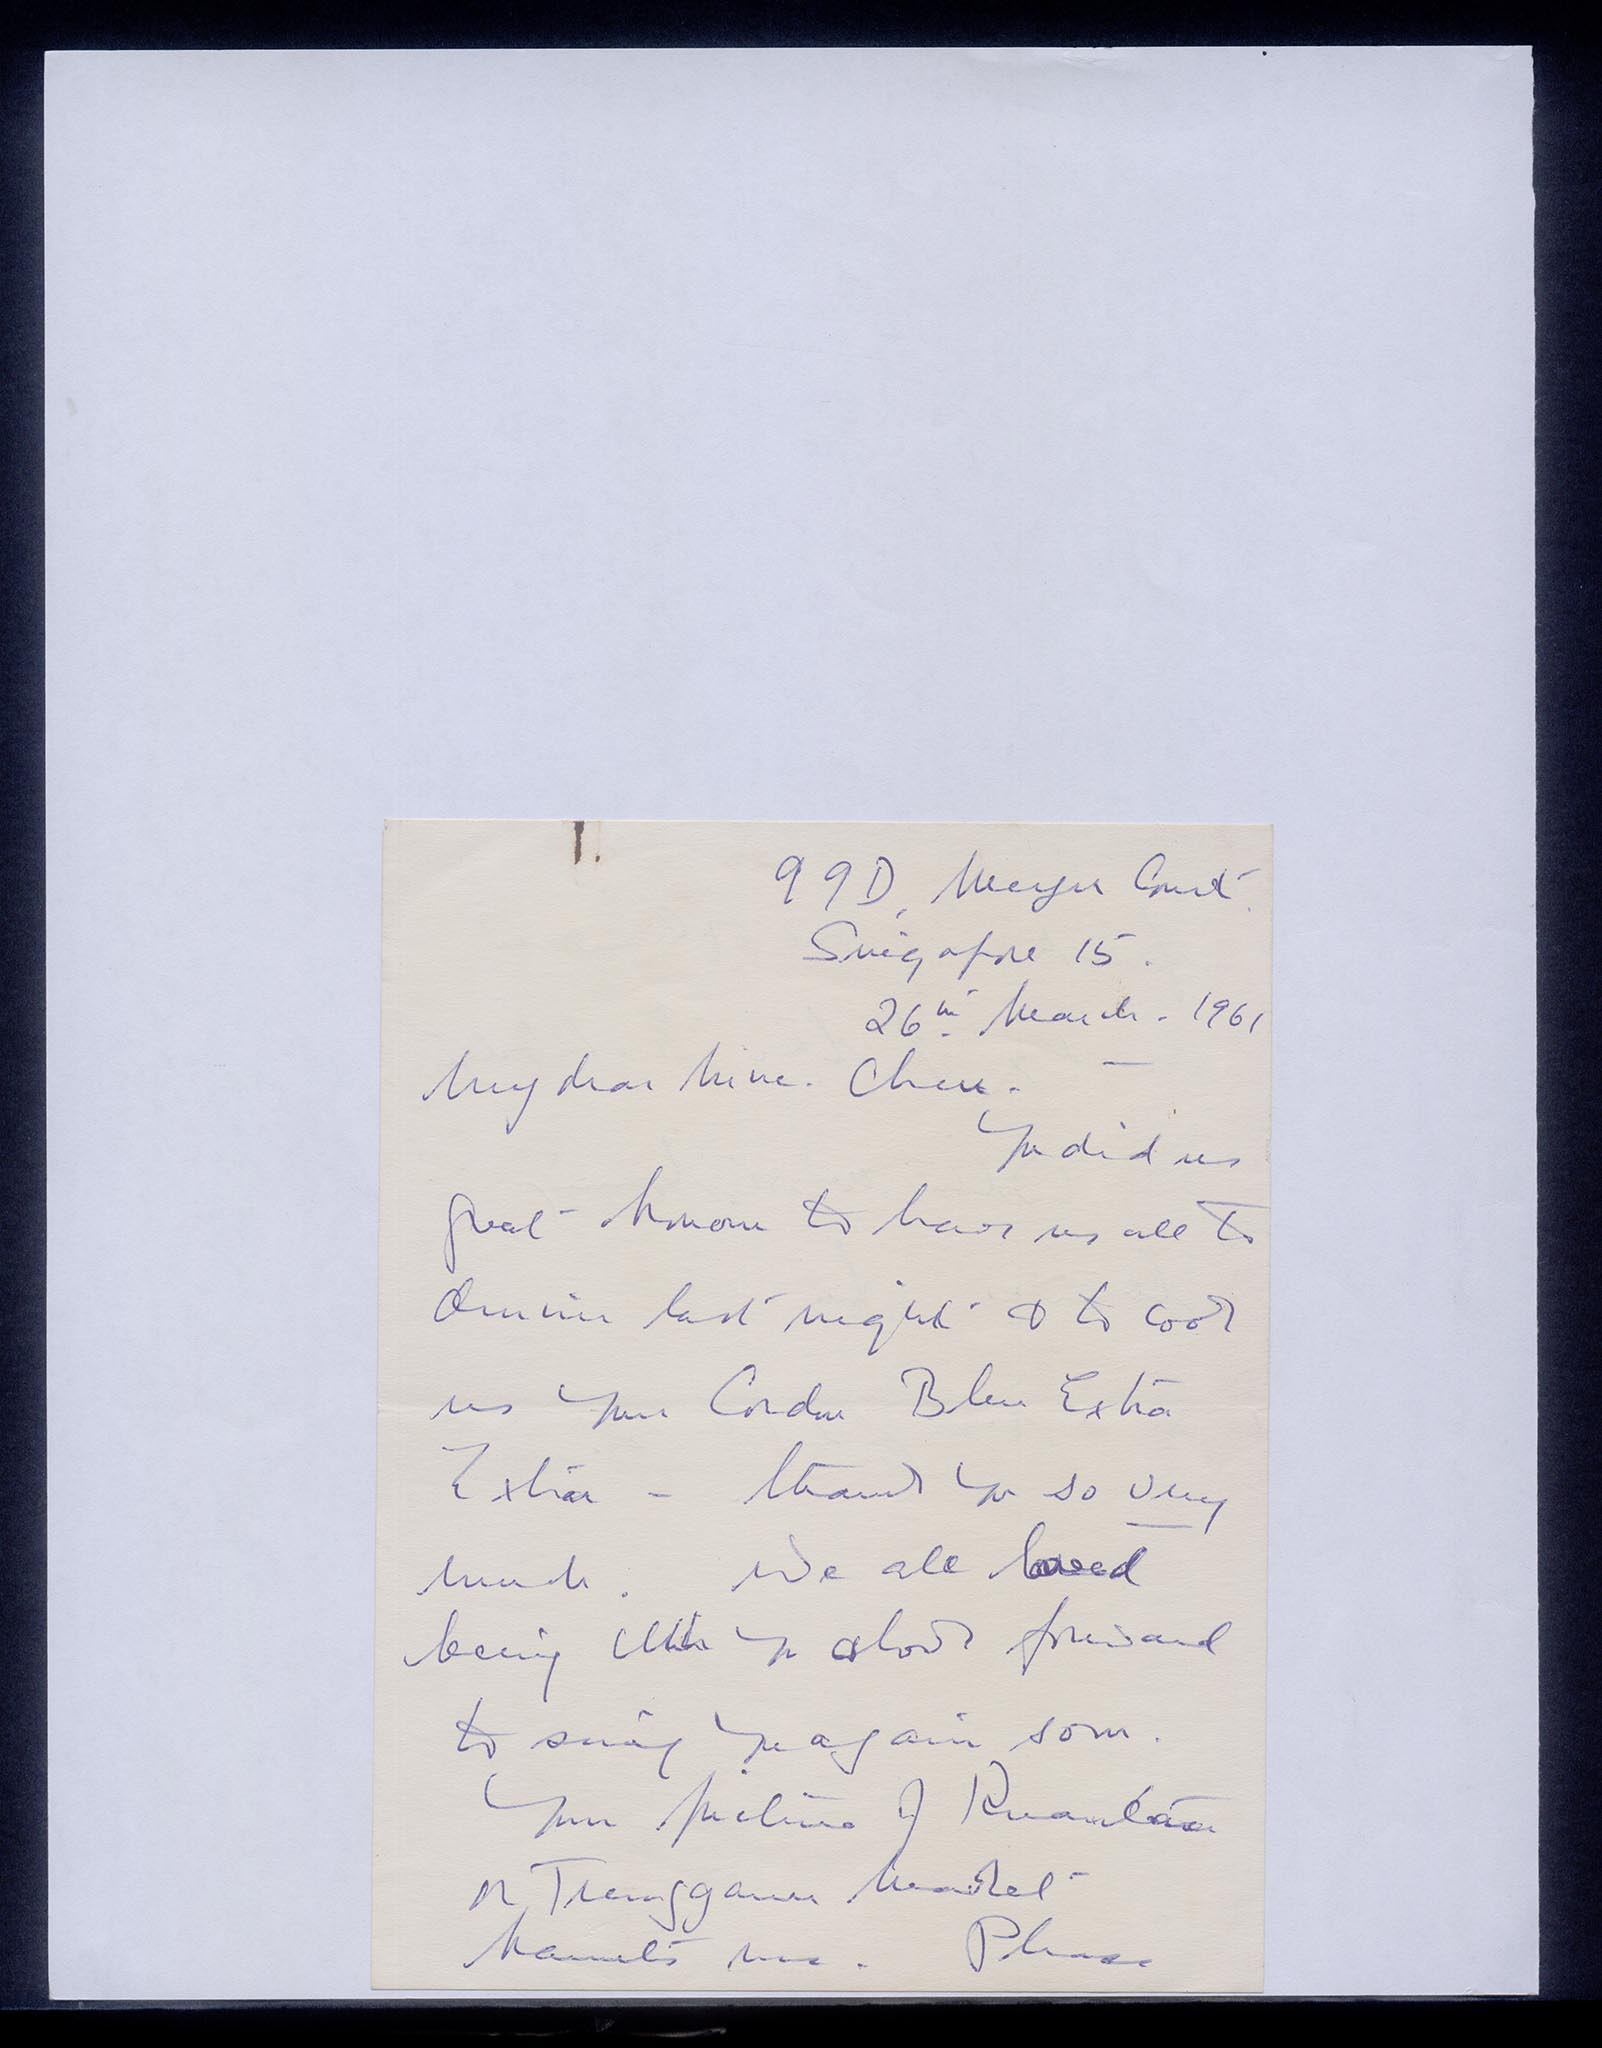 99D, Meyer Court.
Singapore 15.
26th March. 1961
My dear Mme. Chen.
You did us
great honour to have us all to
dinner last night & to cook
us your Cordon Bleu Extra
Extra - thank you so very
much. We all loved
being with you & look forward
to seeing you again soon.
Your picture of Kuantan
or Trengganu Market
haunts me. Please